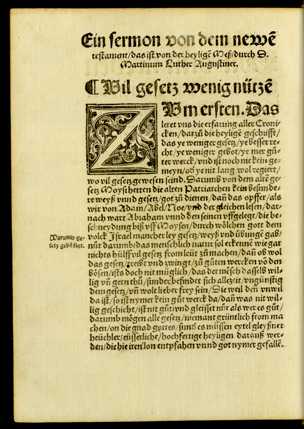 Ein sermon von dem newē
testament/das ist von der heyligē Meß/durch D.
Martinum Luther Augustiner.
¶ Vil gesetz wenig nützē
ZUm ersten. Das
leret vns die erfarung aller Croni-
cken/darzů die heylige geschrifft/
das ye weniger gesetz/ye besser re-
cht. ye weniger gebot/ye mer gů-
ter werck/vnd ist noch nie kein ge-
meyn/ ye nit lang wol regiert/
wo vil gesetz gewesen sind. Darumb vor dem altē ge-
setz Moysi hetten die alten Patriarchen kein besunde-
re weyß vnnd gesetz/got zů dienen/dan das opffer/als
wir von Adam/Abel/Noe/vnd der gleichen lesen/dar
nach wart Abraham vnnd den seinen vffgelegt/die be-
schneydung biß vff Moysen/durch wölchen got dem
volck Israel mancherley gesetz/weyß vnd übunge gab/
Warumb ge-
setz gebē ist.
nůr darumb das menschlich natur sol erkenne wie gar
nichts hülff vil gesetz from leüt zů machen/dan ob wol
das gesetz vnd wingt/zů gůten wercken vō den
bösen/ists doch nit müglich/das der mēsch dasselb wil-
lig vñ gern thů/sunder befindet sich alzeit/vngünstig
dem gesetz/vñ wolt lieber frey sein/Die weil den vnwil
da ist/so ist nymer kein gůt werck da/dan was nit wil-
lig geschicht/ist nit gůt vnd gleisset nůr als wer es gůt/
darumb mögen alle gesetz/niemant grüntlich from ma
chen/on die gnad gottes/sund es müssen eytel gleyßner
heüchler/eüsserliche/hochfertige heyligen darauß wer-
den/die hie iren lon entpfahen vnnd got nymer gefallē.